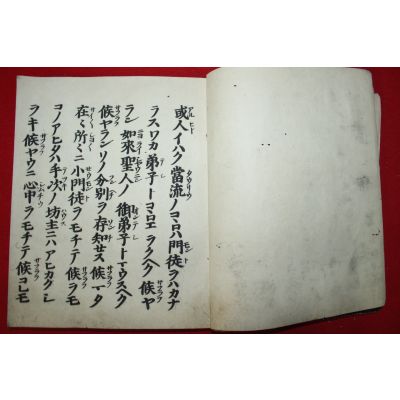 或人イハク當流ノコヽロハ門徒ヲハカナ
ラスワカ弟子トコヽロエヲクヘク候ヤ
ラン如來聖人ノ御弟子トマウスヘク
候ヤランソノ分別ヲ存知セス候マタ
在〻所〻ニ小門徒ヲモチテ候ヲモ
コノアヒタハ手次ノ坊主ニハアヒカクシ
ヲキ候ヤウニ心中ヲモチテ候コレモ